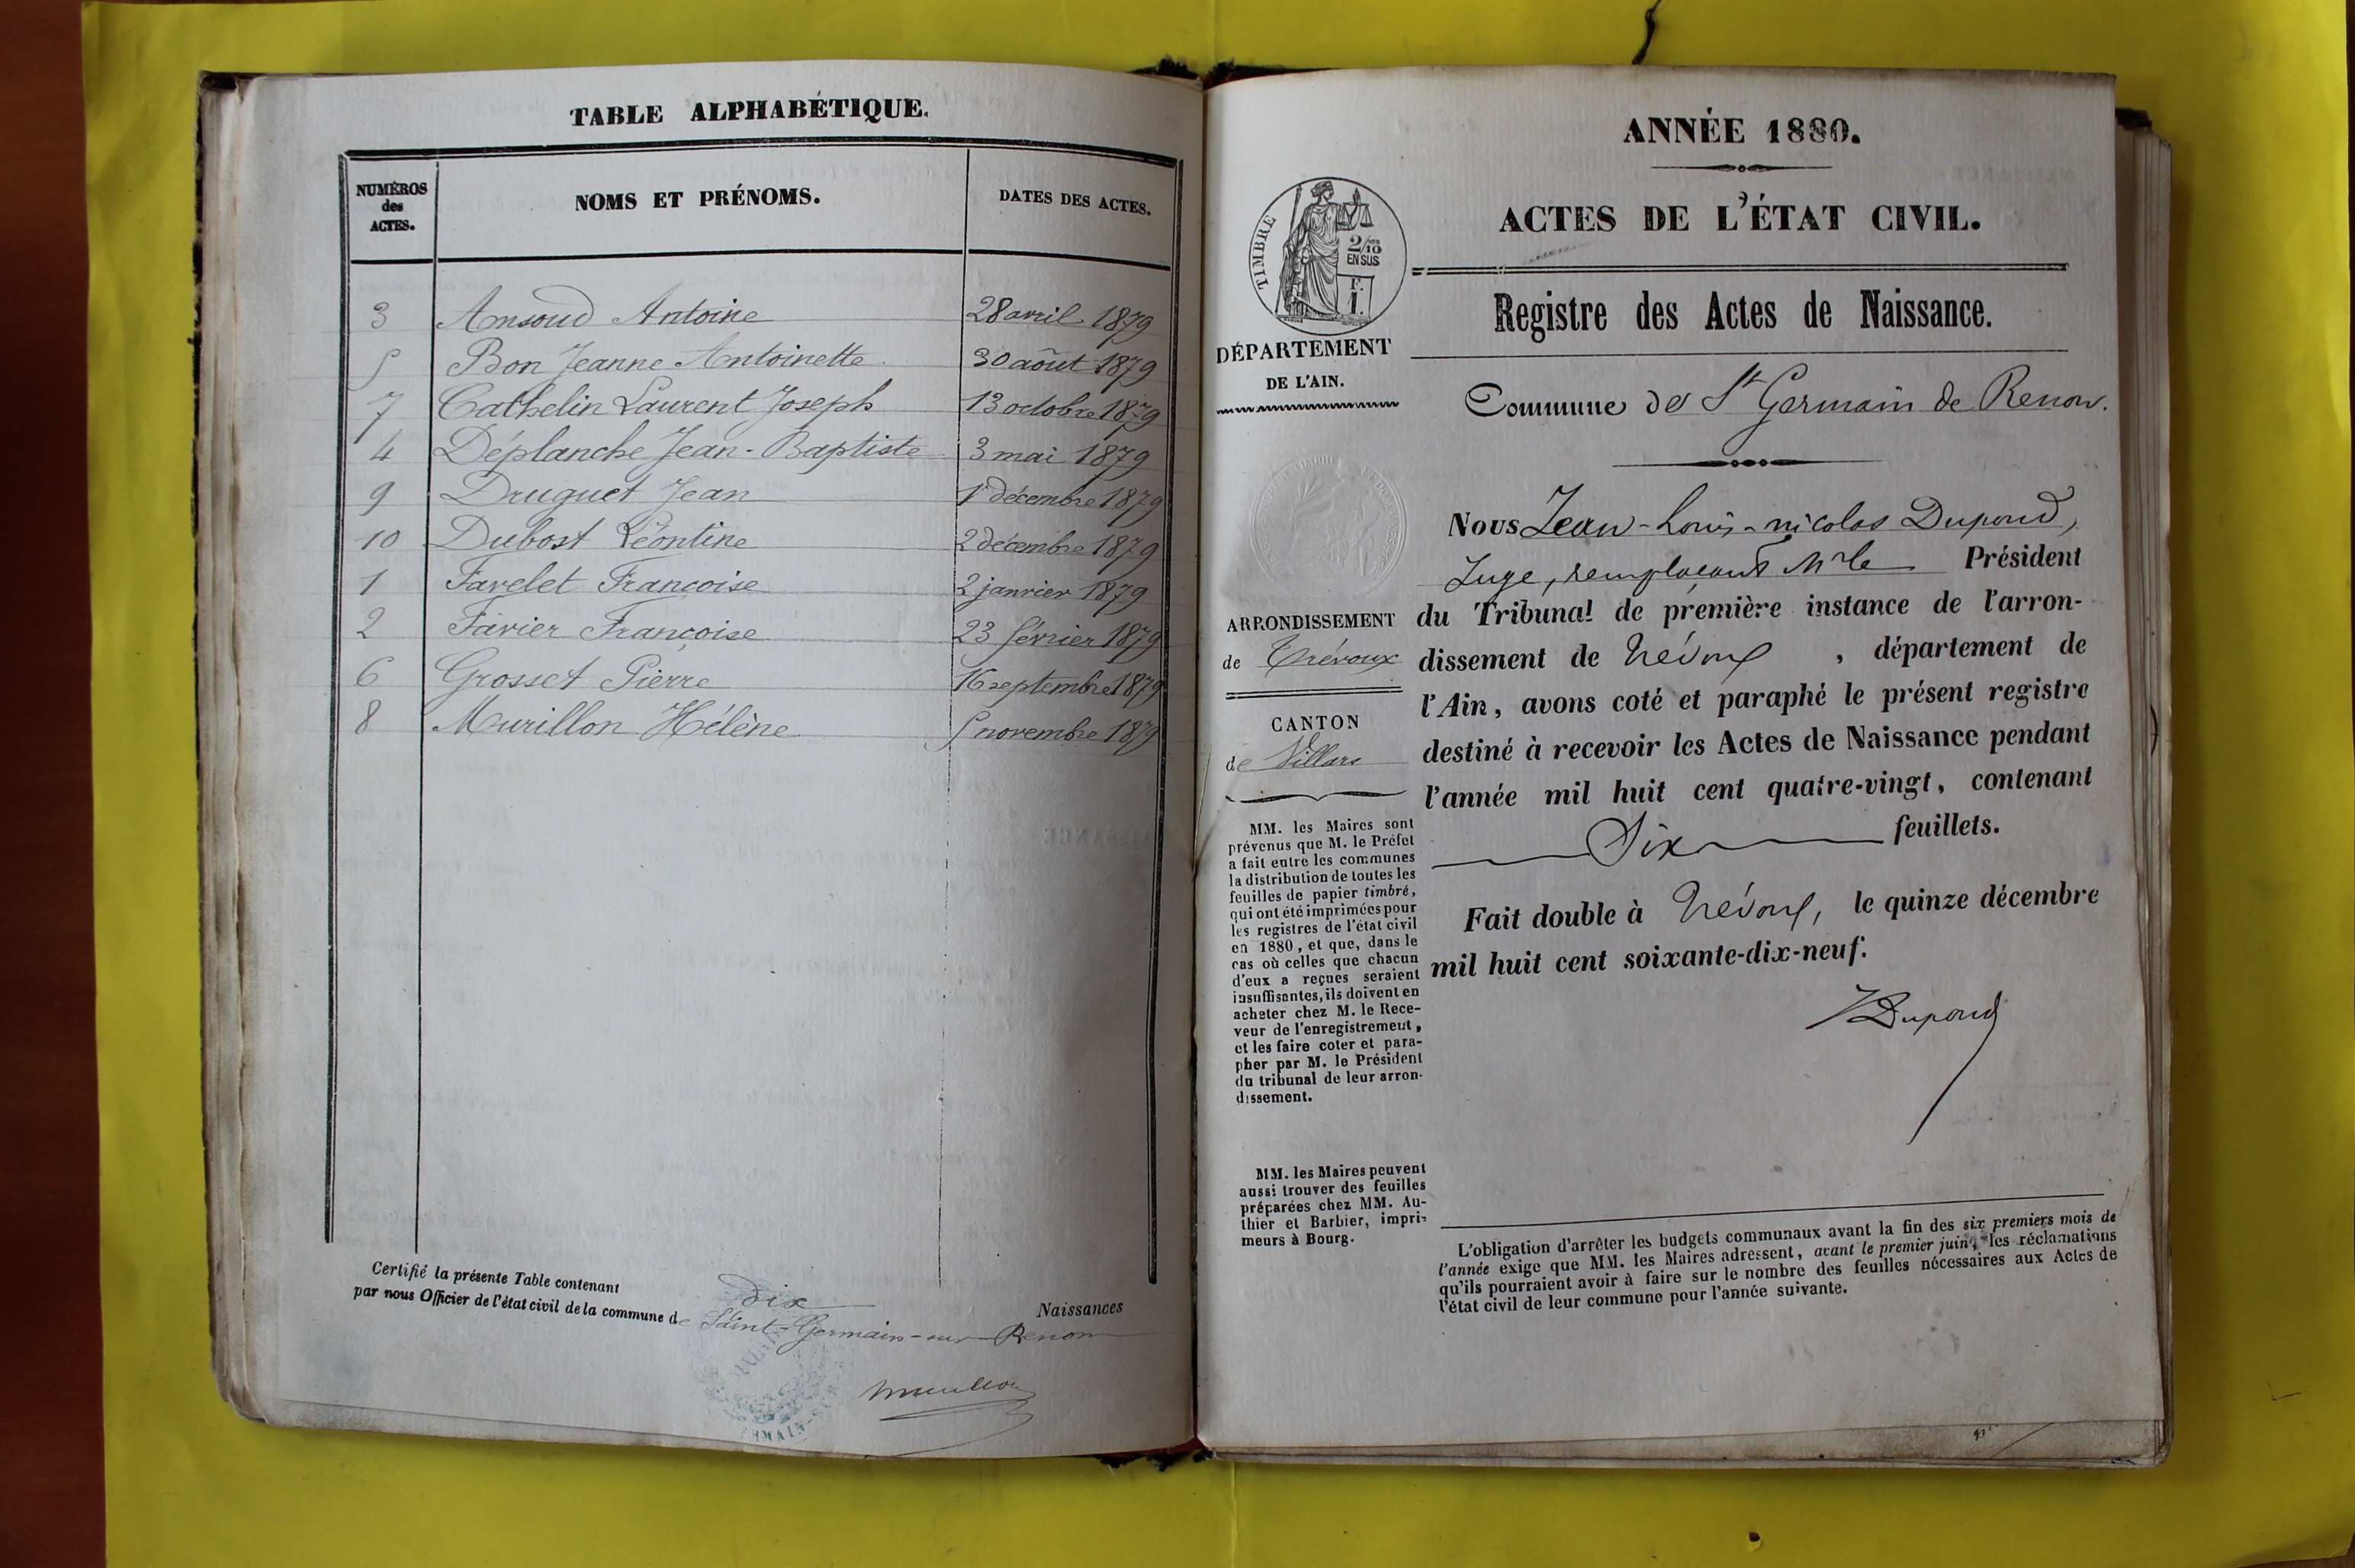 TABLE ALPHABÉTIQUE.
NUMÉROS des ACTES. NOMS ET PRÉNOMS. DATES DES ACTES.
3 Ansoud Antoine 28 avril 1879
5 Bon Jeanne Antoinette 30 août 1879
7 Cathelin Laurent Joseph 13 octobre 1879
4 Déplanche Jean-Baptiste 3 mai 1879
9 Druguet Jean 1r décembre 1879
10 Dubost Léontine 2 décembre 1879
1 Favelet Françoise 2 janvier 1879
2 Favier Françoise 23 février 1879
6 Grosset Pierre 16 septembre 1879
8 Murillon Hélène 5 novembre 1879
Certifié la présente Table contenant dix Naissances
par nous Officier de l'état civil de la commune de Saint-Germain-sur-Renon
ANNÉE 1880.
ACTES DE L'ÉTAT CIVIL.
Registre des Actes de Naissance.
Commune de St Germain de Renon.
TIMBRE
2/10
EN SUS
F.
1.
DÉPARTEMENT
DE L'AIN.
ARRONDISSEMENT
de Trévoux
CANTON
de Villars
MM. les Maires sont
prévenus que M. le Préfet
a fait entre les communes
la distribution de toutes les
feuilles de papier timbré,
qui ont été imprimées pour
les registres de l'état civil
en 1880, et que, dans le
cas où celles que chacun
d'eux a reçues seraient
insuffisantes, ils doivent en
acheter chez M. le Rece-
veur de l'enregistrement,
et les faire coter et para-
pher par M. le Président
du tribunal de leur arron-
dissement.
MM. les Maires peuvent
aussi trouver des feuilles
préparées chez MM. Au-
thier et Barbier, impri-
meurs à Bourg.
Nous Jean-Louis-nicolas Dupond,
Juge, remplaçant Mr le Président
du Tribunal de première instance de l'arron-
dissement de Trévoux, département de
l'Ain, avons coté et paraphé le présent registre
destiné à recevoir les Actes de Naissance pendant
l'année mil huit cent quatre-vingt, contenant
Six feuillets.
Fait double à Trévoux, le quinze décembre
mil huit cent soixante-dix-neuf.
Dupond
L'obligation d'arrêter les budgets communaux avant la fin des six premiers mois de
l'année exige que MM. les Maires adressent, avant le premier juin, les réclamations
qu'ils pourraient avoir à faire sur le nombre des feuilles nécessaires aux Actes de
l'état civil de leur commune pour l'année suivante.